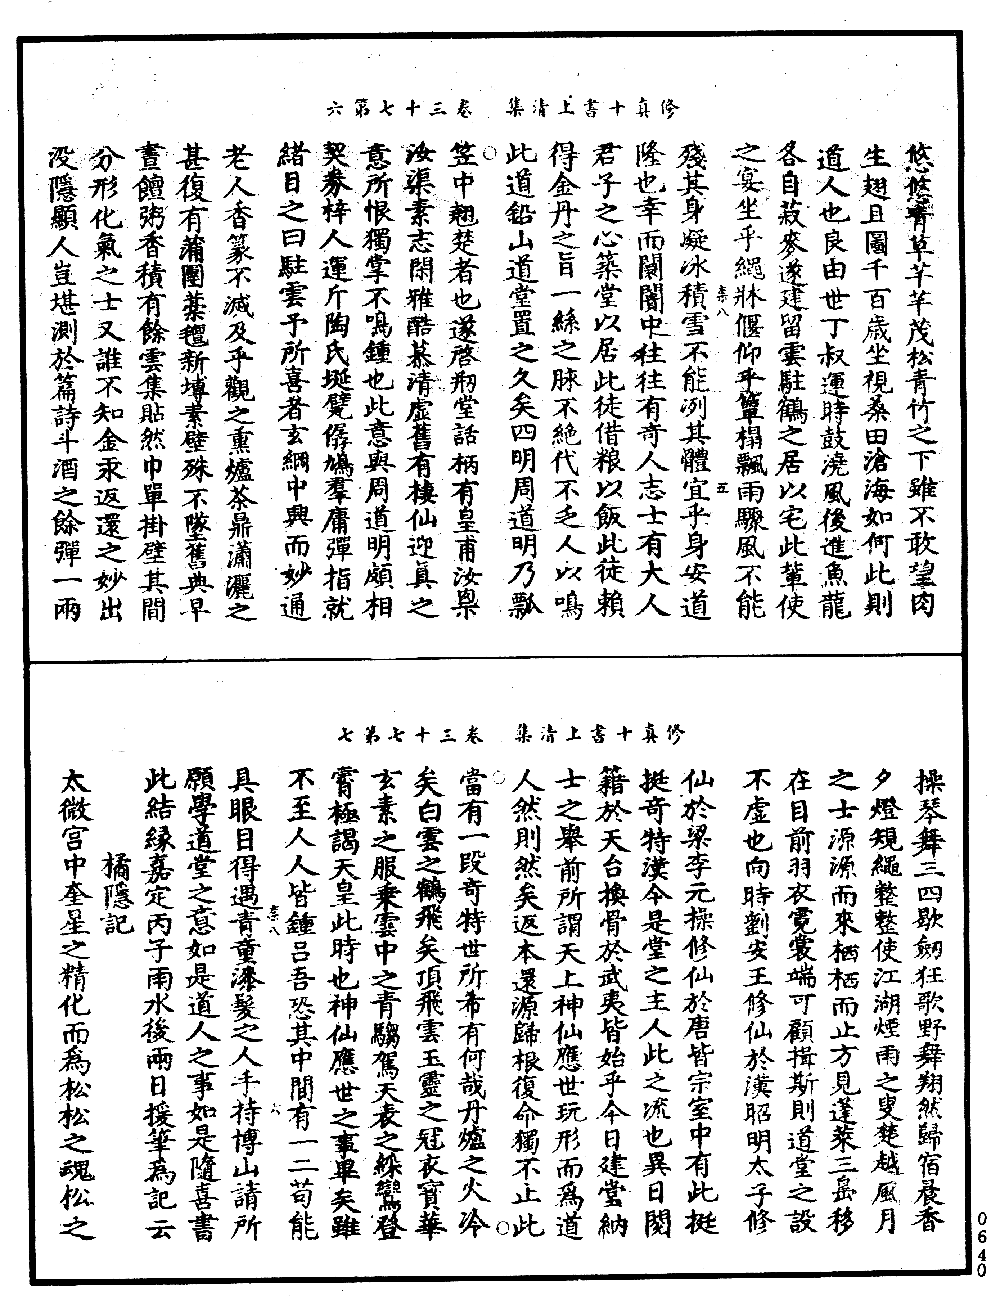 修真十書上清集　卷三十七第六
悠悠青草芊芊茂松青竹之下雖不敢望肉
生翅且圖千百歲坐視桑田滄海如何此則
道人也良由世丁叔運時鼓澆風後進魚龍
各自菽麥遂建留雲駐鶴之居以宅此輩使
之宴坐乎繩牀偃仰乎簞榻飄雨驟風不能
柰八　五
殘其身凝冰積雪不能冽其體宜乎身安道
隆也幸而闤闠中往往有奇人志士有大人
君子之心築堂以居此徒借粮以飯此徒賴
得金丹之旨一絲之脉不絶代不乏人以鳴
此道鉛山道堂置之久矣四明周道明乃瓢
笠中翹楚者也遂啓刱堂話柄有皇甫汝㮚
汝渠素志閑雅酷慕清虛舊有棲仙迎真之
意所恨獨掌不鳴鍾也此意與周道明頗相
契券梓人運斤陶氏埏甓僝鳩羣庸彈指就
緒目之曰駐雲予所喜者玄綱中興而妙通
老人香篆不滅及乎觀之熏爐茶鼎瀟灑之
甚復有蒲團藁氊新塼素壁殊不墜舊典早
晝饘粥香積有餘雲集貼然巾單掛壁其間
分形化氣之士又誰不知金汞返還之妙出
没隱顯人豈堪測於篇詩斗酒之餘彈一兩
修真十書上清集　卷三十七第七
操琴舞三四歇劒狂歌野舞翔然歸宿晨香
夕燈規繩整整使江湖煙雨之叟楚越風月
之士源源而來栖栖而止方見蓬萊三島移
在目前羽衣霓裳端可顧揖斯則道堂之設
不虛也向時劉安王修仙於漢昭明太子修
仙於梁李元操修仙於唐皆宗室中有此挺
挺奇特漢今是堂之主人此之流也異日閱
籍於天台換骨於武夷皆始乎今日建堂納
士之舉前所謂天上神仙應世玩形而為道
人然則然矣返本還源歸根復命獨不止此
當有一段奇特世所希有何哉丹爐之火冷
矣白雲之鶴飛矣頂飛雲玉靈之冠衣寶華
玄素之服乗雲中之青騶駕天表之綵鸞登
霄極謁天皇此時也神仙應世之事畢矣雖
不至人人皆鍾吕吾恐其中間有一二苟能
柰八　六
具眼目得遇青童漆髮之人手持博山請所
願學道堂之意如是道人之事如是隨喜書
此結縁嘉定丙子雨水後兩日援筆為記云
橘隱記
太微宫中奎星之精化而為松松之魂松之
0640